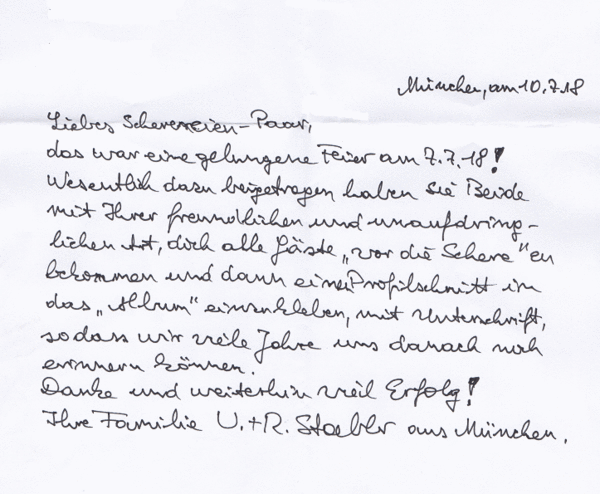 München, am 10.7.18
Liebes Scherereien-Paar,
das war eine gelungene Feier am 7.7.18!
Wesentlich dazu beigetragen haben Sie Beide
mit Ihrer freundlichen und unaufdring-
lichen Art, doch alle Gäste „vor die Schere" zu
bekommen und dann einen Profilschnitt in
das „Album" einzukleben, mit Unterschrift,
sodass wir viele Jahre uns danach noch
erinnern können.
Danke und weiterhin viel Erfolg!
Ihre Familie U.+R. Staebler aus München.